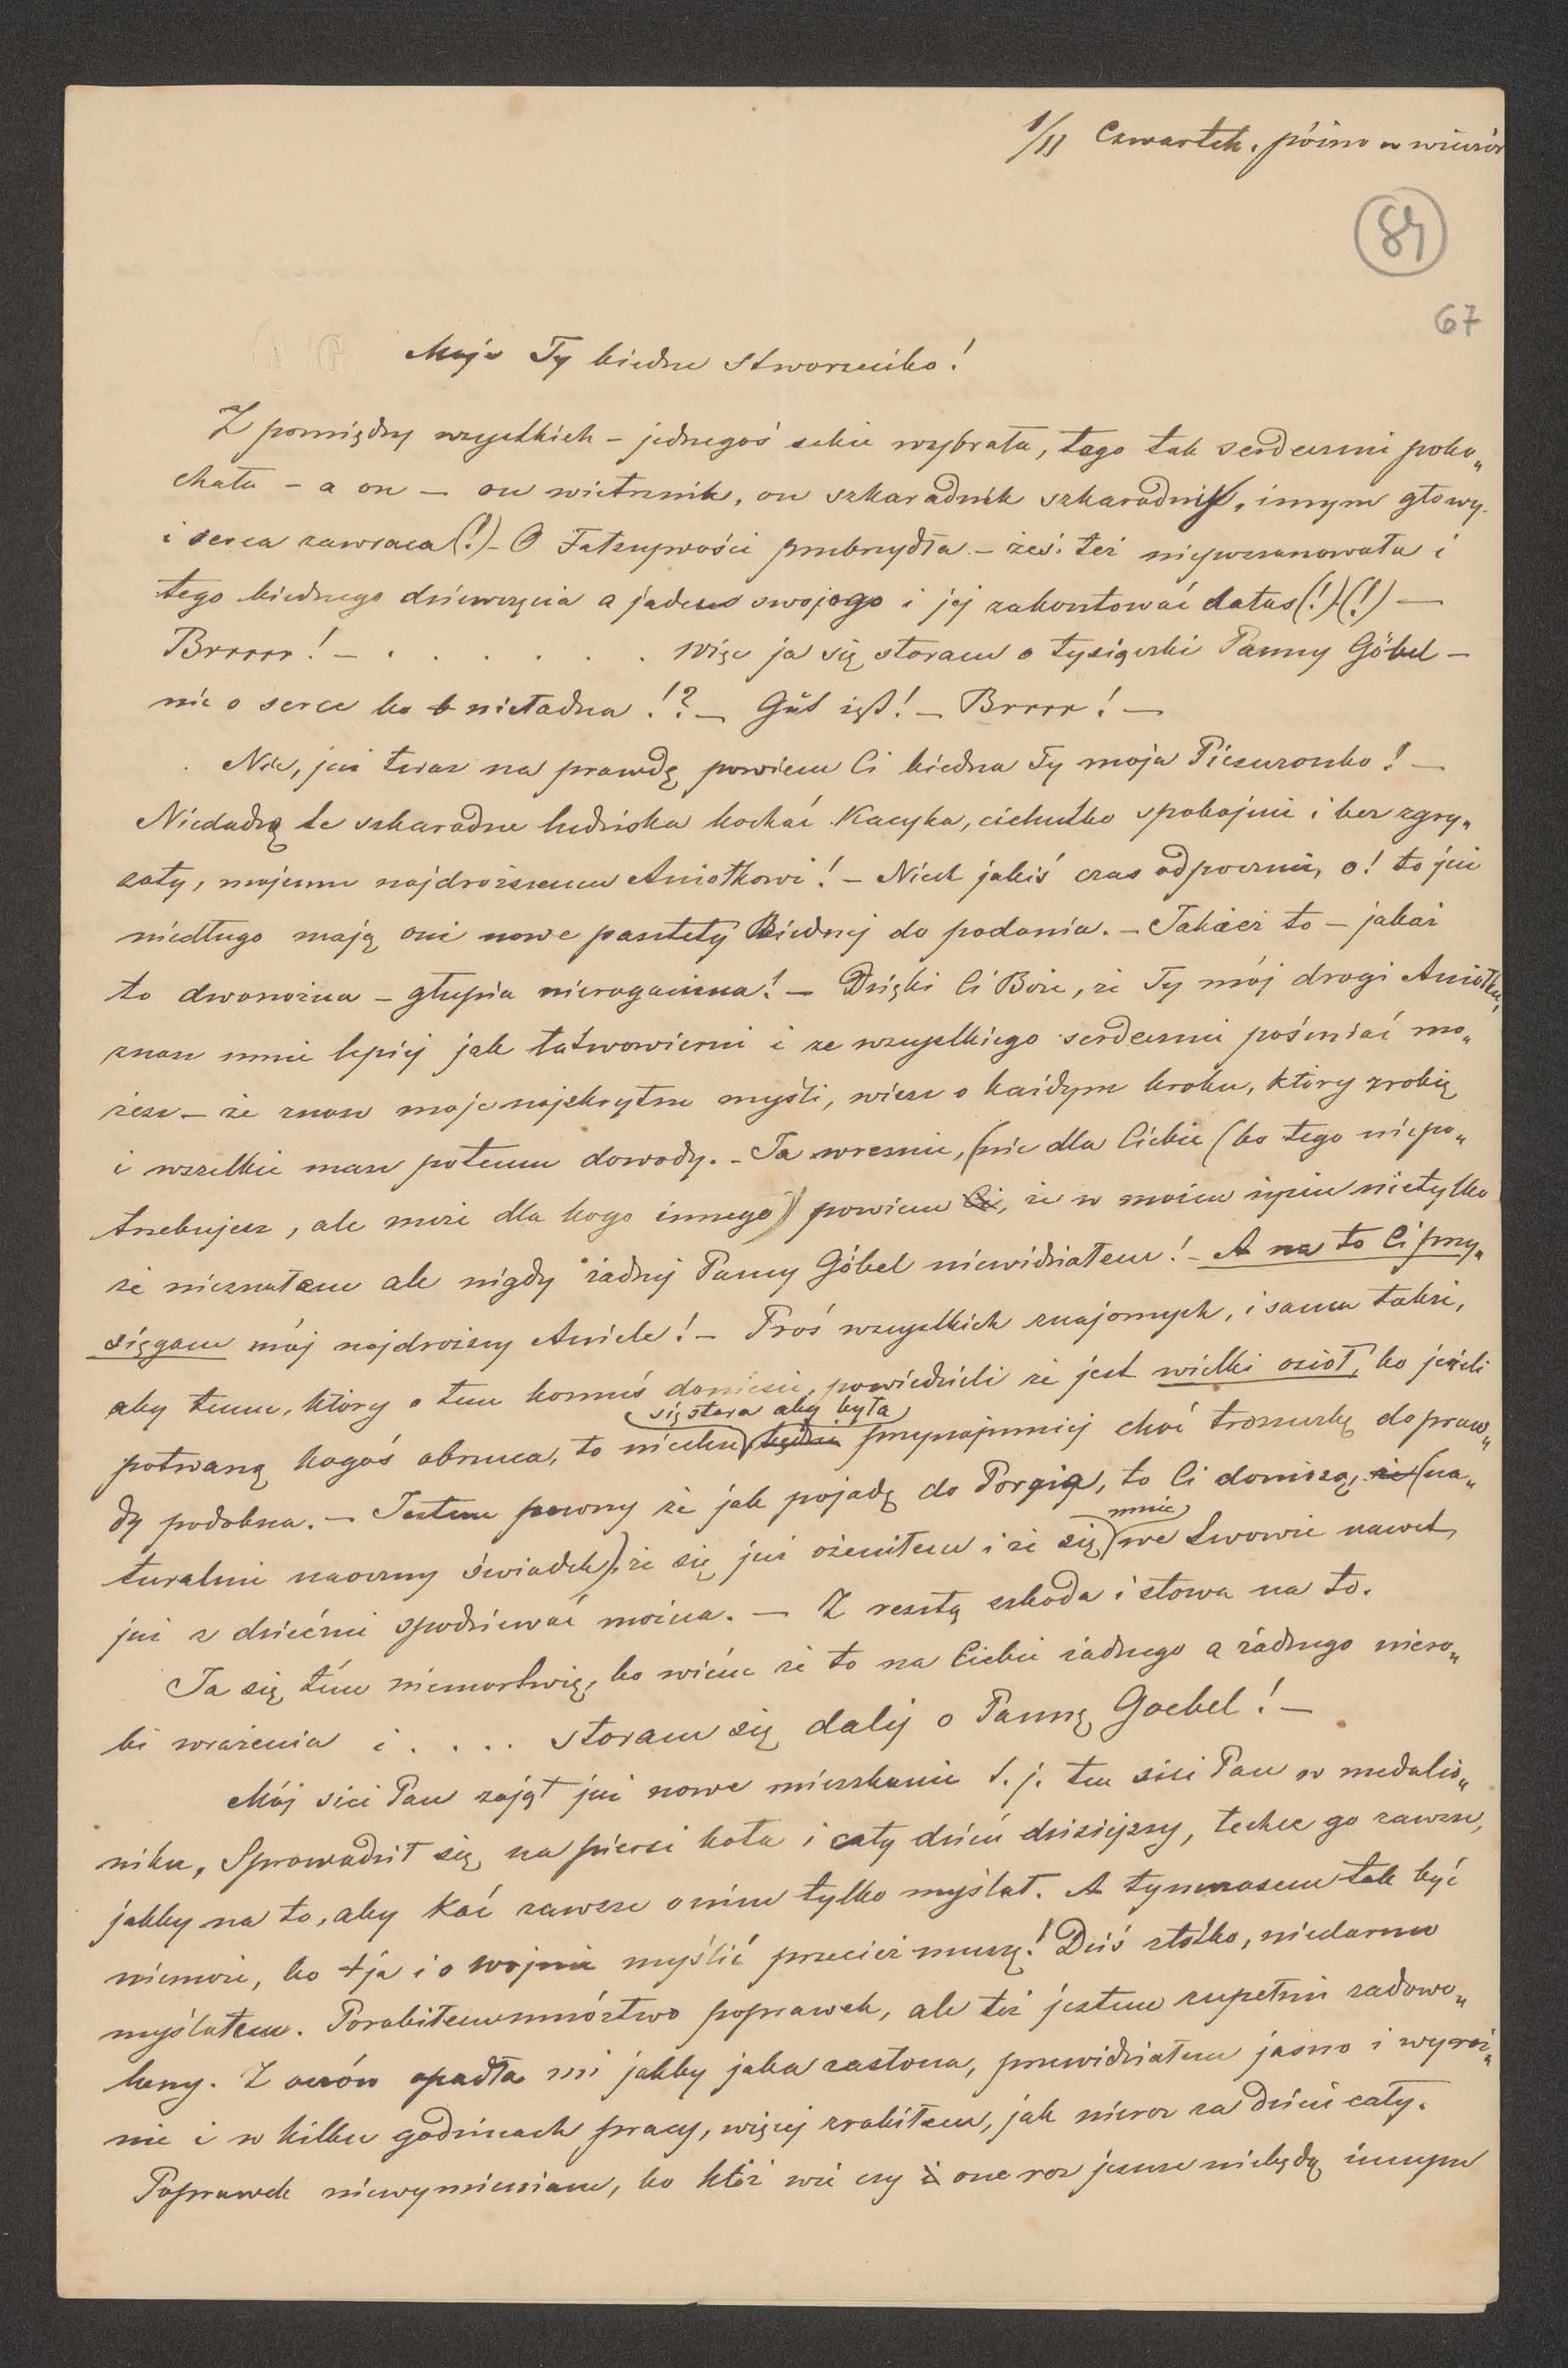 1/11 Czwartek. późno w wieczór
84
67
Moje Ty biedne stworzeńko!
Z pomiędzy wszystkich – jednegoś sobie wybrała, tego tak serdecznie poko„
chała – a on – on wietrznik, on szkaradnik szkaradnik, innym głowy
i serca zawraca (!) – O Fałszywości przebrzydła – żeś też nieuszanowała i
tego biednego dziewczęcia a jadem swojego i jej zakosztować dałaś (!) (!) —
Brrrrr! – . . . . . . . więc ja się staram o tysiączki Panny Göbel –
nie o serce bo nieładna!? – Gut ist! – Brrrr! —
Nie, już teraz na prawdę powiem Ci biedna Ty moja Pieszczonko! —
Niedadzą te szkaradne ludziska kochać Kacyka, cichutko spokojnie i bez zgry„
zoty, mojemu najdroższemu Aniołkowi! – Niech jakiś czas odpocznie, o! to już
niedługo mają oni nowe pasztety Biednej do podania. – Jakież to – jakaż
to dwonożna – głupia nierogacizna! – Dzięki Ci Boże, że Ty mój drogi Aniołku,
znasz mnie lepiej jak łatwowierni i ze wszystkiego serdecznie pośmiać mo„
żesz – że znasz moje najskrytsze myśli, wiesz o każdym kroku, który zrobię
i wszelkie masz potemu dowody. – Ja wreszcie, (nie dla Ciebie (bo tego niepo„
trzebujesz, ale może dla kogo innego)) powiem Ci, że w mojem życiu nietylko
że nieznałem ale nigdy żadnej Panny Göbel niewidziałem! – A na to Ci przy„
sięgam mój najdroższy Aniele! – Proś wszystkich znajomych, i sama także,
aby temu, który o tem komuś doniesie, powiedzieli że jest wielki osioł, bo jeżeli
się stara aby była
potwarzą kogoś obrzuca, to niechże będzie przynajmniej choć troszeczkę do praw„
dy podobna. – Jestem pewny że jak pojadę do Porąża, to Ci doniosą, że (na„
mnie
turalnie naoczny świadek), że się już ożeniłem i że się we Lwowie nawet,
już z dziećmi spodziewać można. — Z resztą szkoda i słowa na to.
Ja się tém niemartwię, bo wiém że to na Ciebie żadnego a żadnego niezro„
bi wrażenia i . . . . staram się dalej o Pannę Goebel! —
Mój sici Pan zajął już nowe mieszkanie t. j. ten sici Pan w medalio„
niku, Sprowadził się na piersi kota i cały dzień dzisiejszy, łechce go zawsze,
jakby na to, aby Koć zawsze o nim tylko myślał. A tymczasem tak być
niemoże, bo ja i o wojnie myślić przecież muszę! Dziś złotko, niedarmo
myślałem. Porobiłem mnóstwo poprawek, ale też jestem zupełnie zadowo„
lony. Z oczów opadła mi jakby jaka zasłona, przewidziałem jasno i wyraź„
nie i w kilku godzinach pracy, więcej zrobiłem, jak nieraz za dzień cały.
Poprawek niewymieniam, bo któż wie czy one raz jeszcze niebędą innym